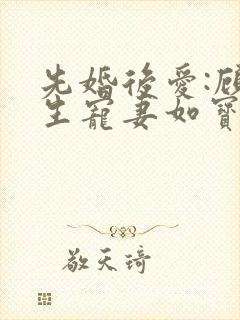 先婚後愛:顧
生寵妻如寶
敬天琦